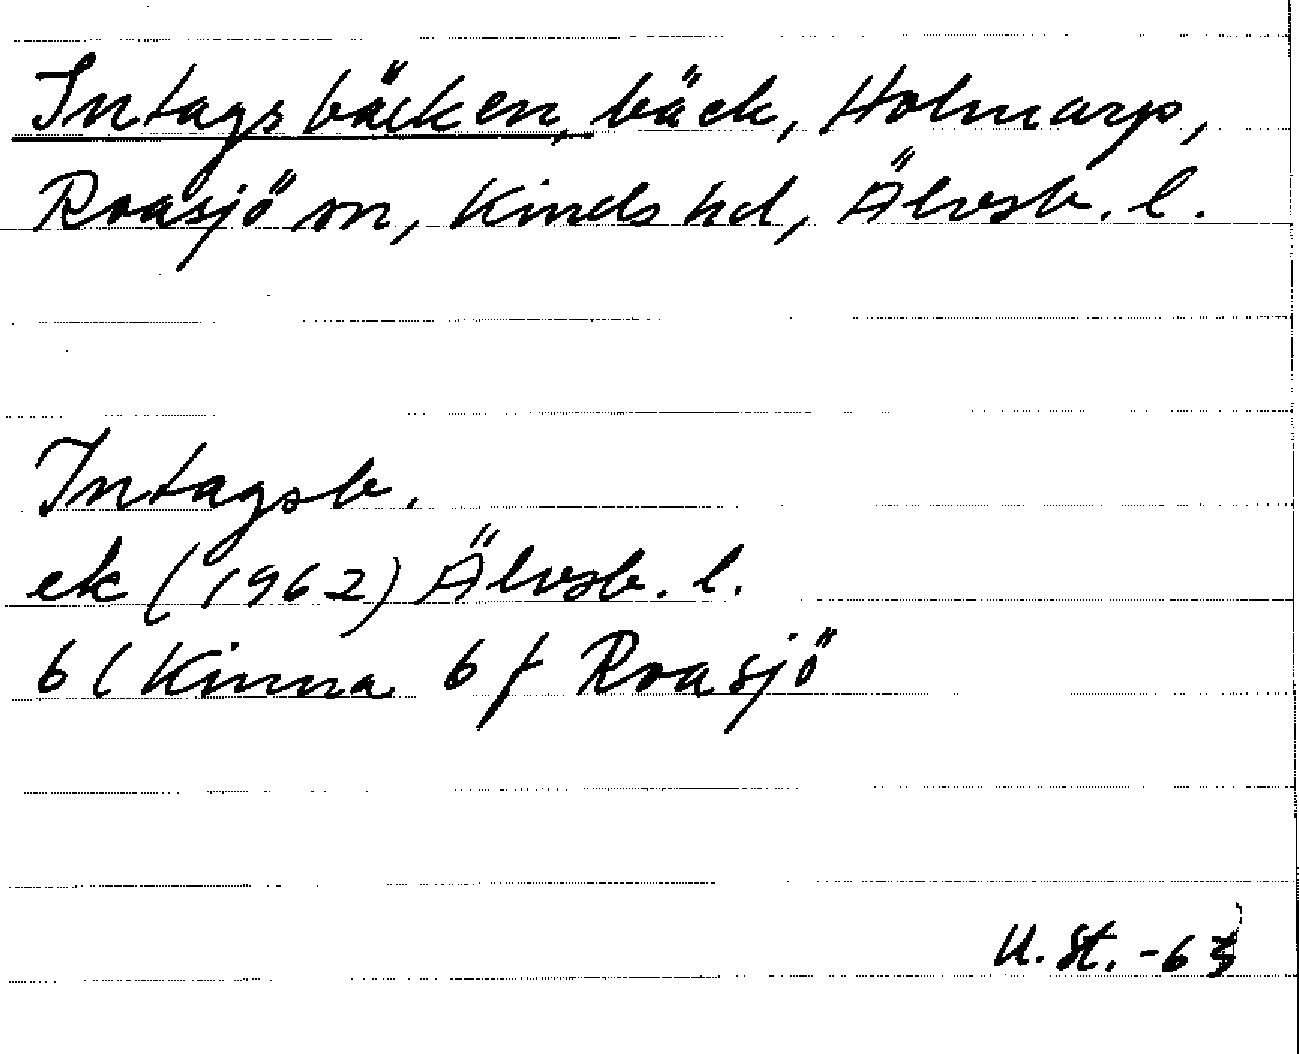 Intagsbäcken, bäck, Holmarp,
Roasjö sn, Kinds hd, Älvsb. l.
Intagsb.
ek (1962) Älvsb. l.
6 C Kinna 6 f Roasjö
U. St. -63